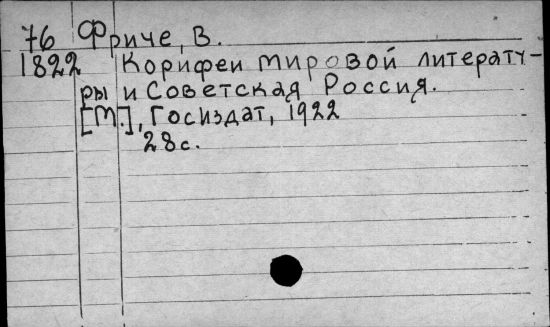 76 Фриче, В.
1822 Корифеи мировой литерату-
ры и Советская Россия.
[М.], Госиздат, 1922
28с.